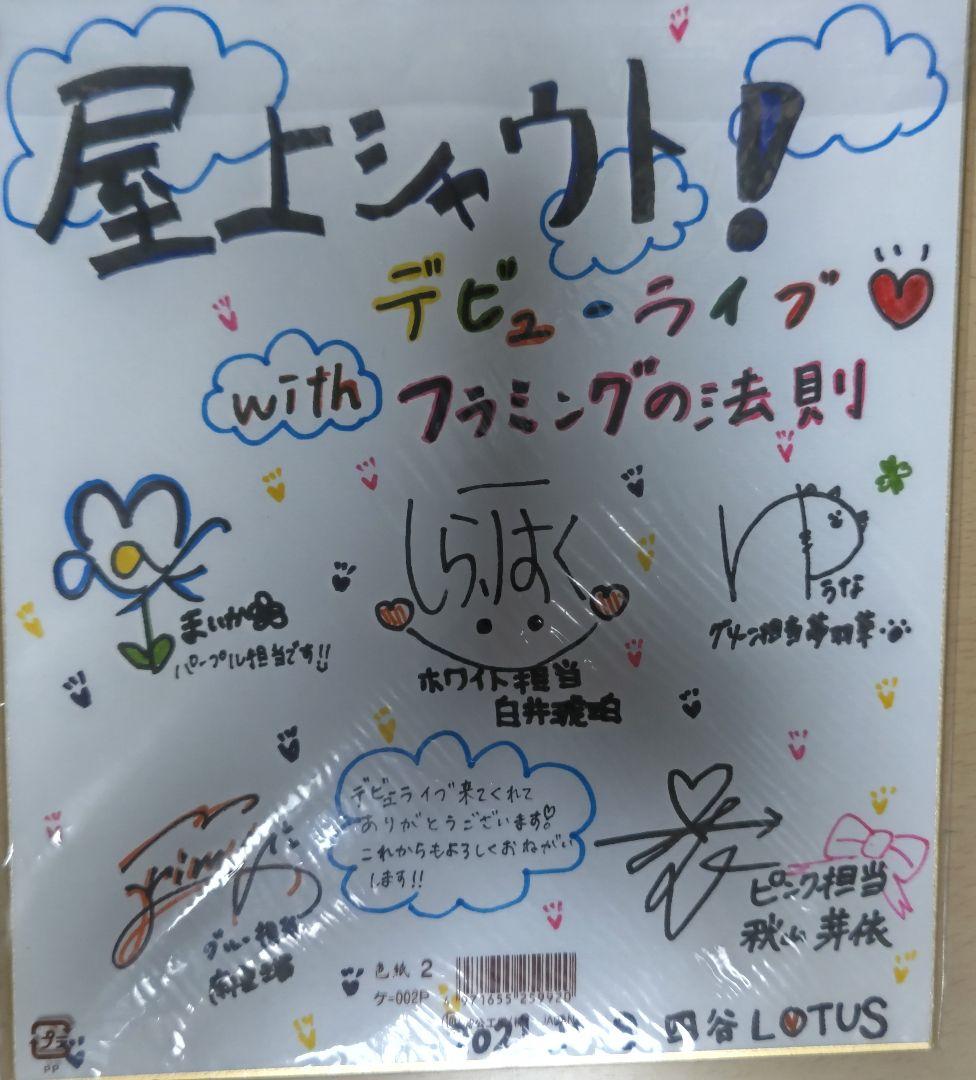 屋上シャウト!
デビューライブ
with フラミングの法則
しらはく
うな
まいか
パープル担当です!!
グリーン担当
ホワイト担当
白井琥珀
デビューライブ来てくれて
ありがとうございます!
これからもよろしくおねがい
します!!
ブルー担当
ピンク担当
秋山芽依
色紙 2
ケ-002P
4 971655 259920
JAPAN
四谷LOTUS
プラ
PP